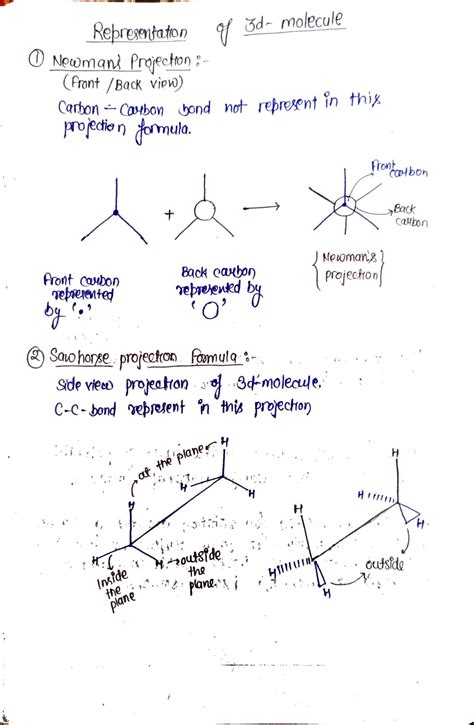 Representation of 3d- molecule
① Newman's Projection :-
(Front / Back view)
Carbon - Carbon bond not represent in this
projection formula.
Front carbon
+
Back carbon
{ Newman's projection }
Front carbon represented by '•'
Back carbon represented by 'O'
② Sawhorse projection Formula :-
Side view projection of 3d-molecule.
C-C-bond represent in this projection
H
at the plane
H
H
H
H
H
H
Inside the plane
outside the plane.
H
H
H
H
H
H
outside